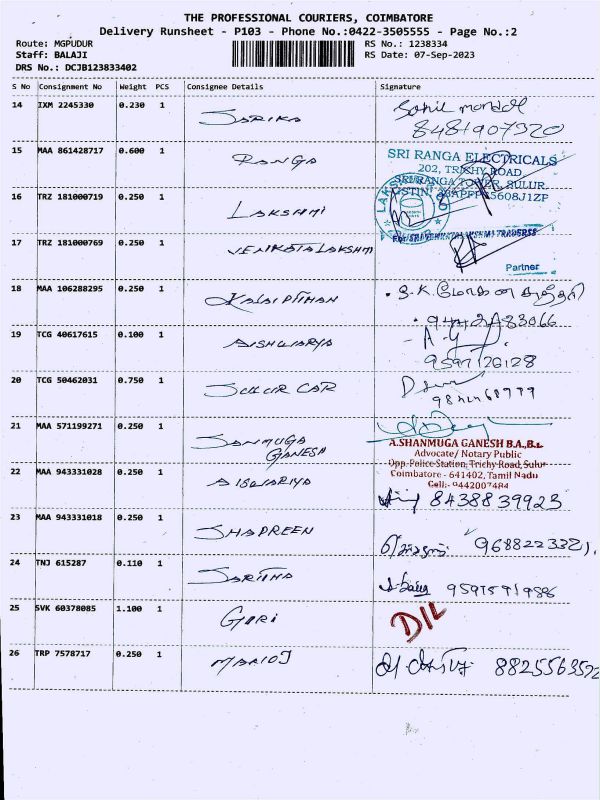 THE PROFESSIONAL COURIERS, COIMBATORE
Delivery Runsheet - P103 - Phone No.:0422-3505555 - Page No.:2
Route: MGPUDUR
RS No.: 1238334
Staff: BALAJI
RS Date: 07-Sep-2023
DRS No.: DCJB123833402
S No Consignment No Weight PCS Consignee Details Signature
14 IXM 2245330 0.230 1 SARIKA
8481907320
15 MAA 861428717 0.600 1 RANGA
SRI RANGA ELECTRICALS
202, TRICHY ROAD
SRI RANGA TOWER, SULUR
16 TRZ 181000719 0.250 1 LAKSHMI
17 TRZ 181000769 0.250 1 VENKATALAKSHMI
Partner
18 MAA 106288295 0.250 1
19 TCG 40617615 0.100 1 AISHWARYA
9597126128
20 TCG 50462031 0.750 1 SULUR CAR
21 MAA 571199271 0.250 1 SANMUGA
GANESH
A.SHANMUGA GANESH B.A.,B.L
Advocate/ Notary Public
Opp. Police Station, Trichy Road, Sulur
Coimbatore - 641402, Tamil Nadu
Cell:- 9442007484
22 MAA 943331028 0.250 1 AISWARIYA
8438839923
23 MAA 943331018 0.250 1 SHAPREEN
9688223321
24 TNJ 615287 0.110 1 SARITHA
25 SVK 60378085 1.100 1 GORI
D/L
26 TRP 7578717 0.250 1 MARIOJ
8825563572